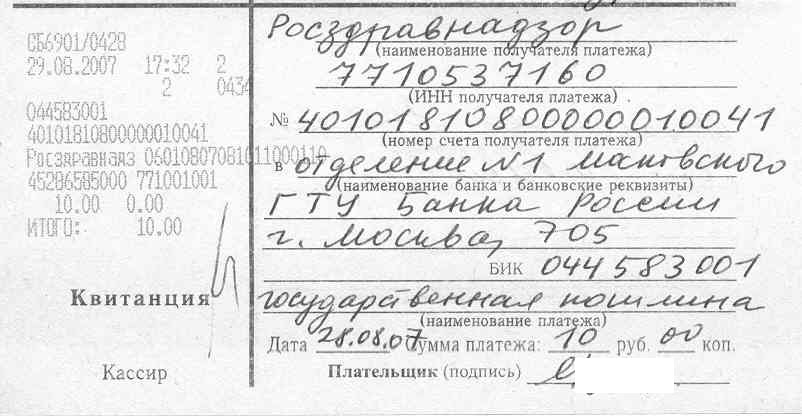 СБ6901/0428
29.08.2007 17:32 2
2 0434
044583001
40101810800000010041
Росздравназ 06010807081011000110
45286585000 771001001
10.00 0.00
ИТОГО: 10.00
Квитанция
Кассир
Росздравнадзор
(наименование получателя платежа)
7710537160
(ИНН получателя платежа)
№ 40101810800000010041
(номер счета получателя платежа)
в отделение №1 Московского
(наименование банка и банковские реквизиты)
ГТУ Банка России
г. Москва, 705
БИК 044583001
государственная пошлина
(наименование платежа)
Дата 28.08.07 Сумма платежа: 10 руб. 00 коп.
Плательщик (подпись)